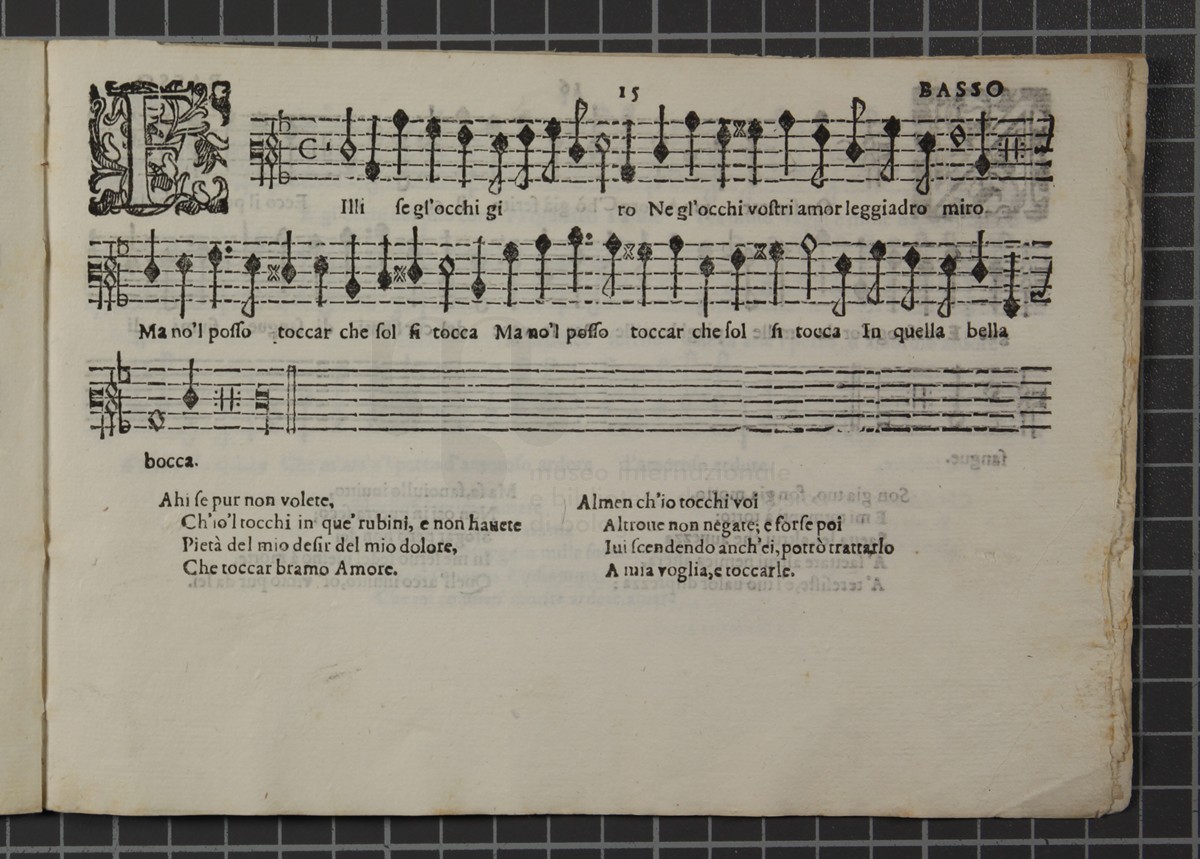 15
BASSO
Filli ſe gl'occhi gi ro Ne gl'occhi voſtri amor leggiadro miro
Ma no'l poſſo toccar che ſol ſi tocca Ma no'l poſſo toccar che ſol ſi tocca In quella bella
bocca.
Ahi ſe pur non volete,
Ch'io'l tocchi in que' rubini, e non hauete
Pietà del mio deſir del mio dolore,
Che toccar bramo Amore.
Almen ch'io tocchi voi
Altroue non negate; e forſe poi
Iui ſcendendo anch'ei, potrò trattarlo
A mia voglia, e toccarlo.